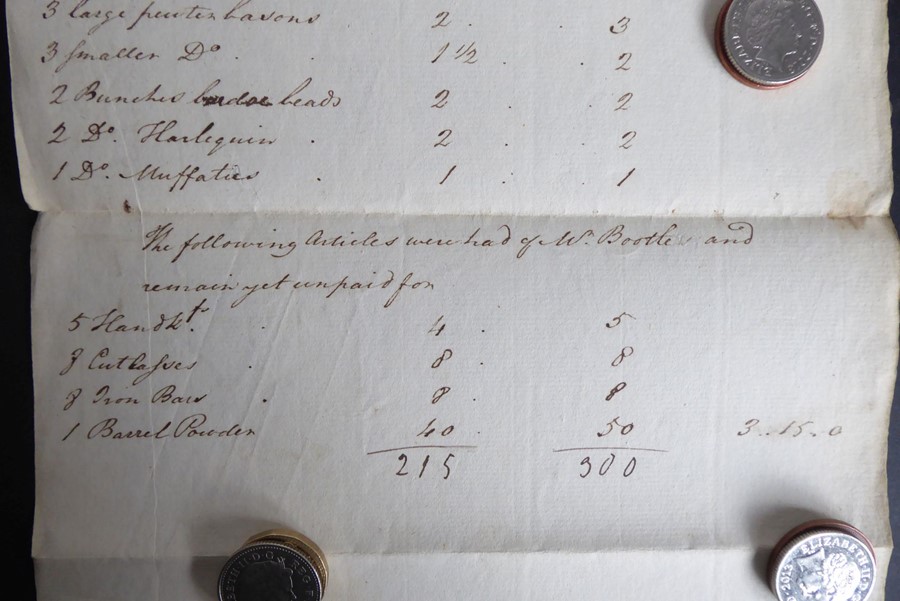 3 large pewter basons 2 . 3
3 smaller Do . . 1 1/2 . . 2
2 Bunches beads 2 . . 2
2 Do. Harlequin . 2 . . 2
1 Do. Muffaties . 1 . . 1
The following Articles were had of Mr. Bootle and
remain yet unpaid for
5 Handkts . 4 . 5
8 Cutlasses . 8 . 8
8 Iron Bars . 8 . 8
1 Barrel Powder 40 . 50 3..15.0
215 300
ELIZABETH·II·D·G
2013